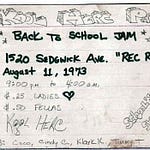 Kool Herc P
BACK TO SCHOOL JAM
1520 SEDGWICK AVE. "REC R
August 11, 1973
9:00 pm to 4:00 am
$.25 LADIES
$.50 FELLAS
KOOL HERC
Coco, Cindy C., Klark K. Timmy